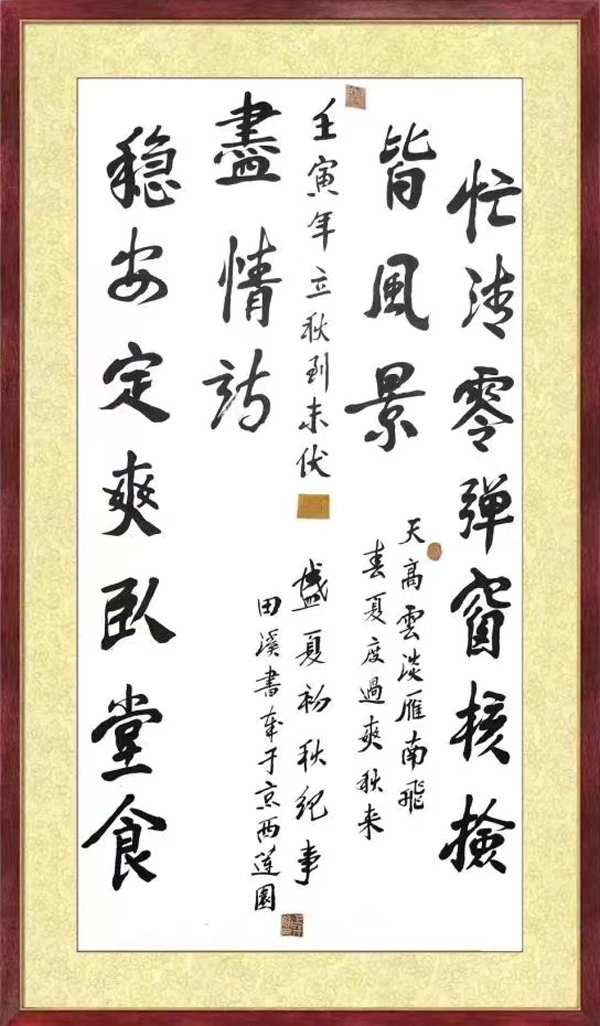 忙清零弹窗核撿
皆風景
天高雲淡雁南飛
春夏度過爽秋来
壬寅年立秋到末伏
盛夏初秋纪事
田溪書于京西莲園
盡情訪
稳安定爽臥堂食